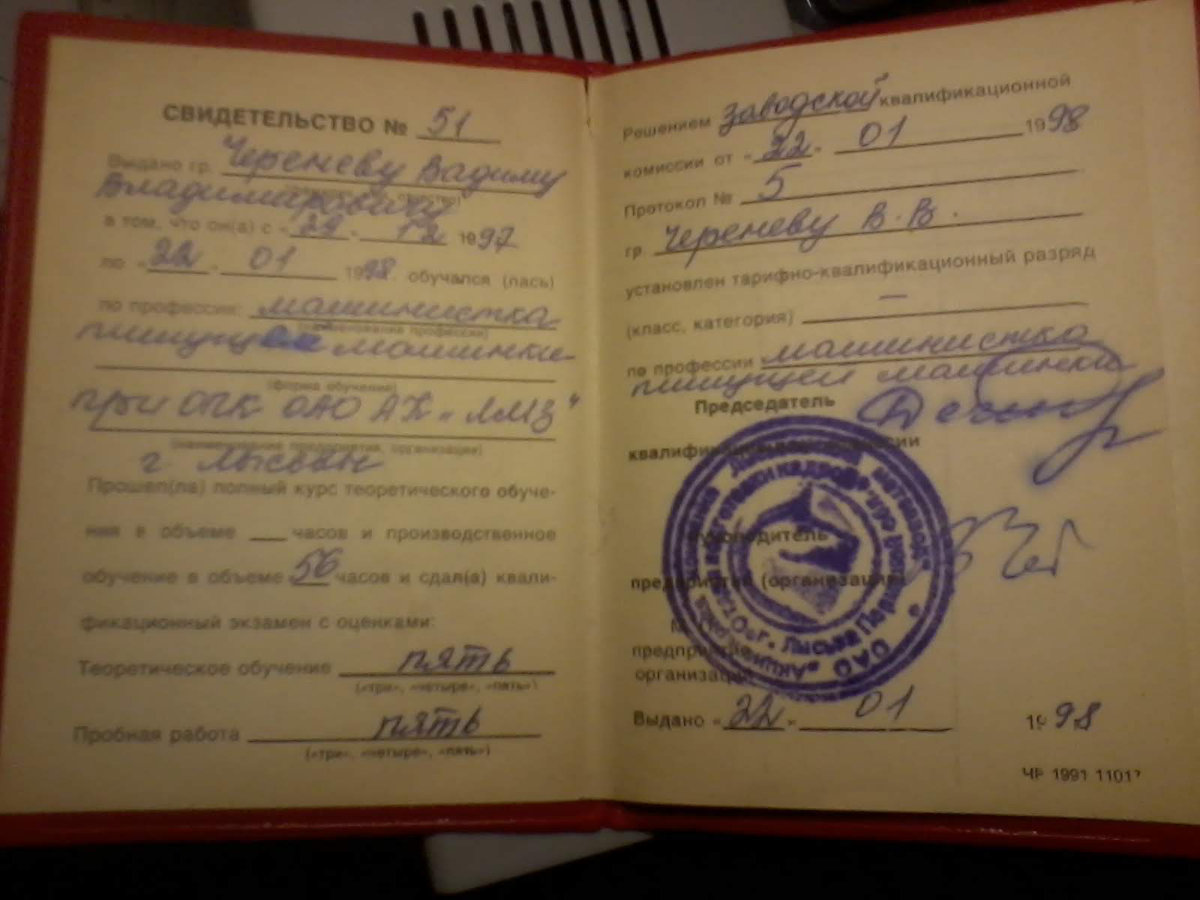 СВИДЕТЕЛЬСТВО № 51
Выдано гр. Череневу Вадиму
Владимировичу
в том, что он(а) с «29» 12 1997
по «22» 01 1998 обучался (лась)
по профессии: машинистка
(наименование профессии)
пишущей машинки
(форма обучения)
при ОПК ОАО АК „ЛМЗ"
(наименование предприятия, организации)
г. Лысьвы
Прошел(ла) полный курс теоретического обуче-
ния в объеме часов и производственное
обучение в объеме 56 часов и сдал(а) квали-
фикационный экзамен с оценками:
Теоретическое обучение пять
(«три», «четыре», «пять»)
Пробная работа пять
(«три», «четыре», «пять»)
Решением заводской квалификационной
комиссии от «22» 01 1998
Протокол № 5
гр. Череневу В.В.
установлен тарифно-квалификационный разряд
(класс, категория) —
по профессии машинистка
пишущей машинки
Председатель
квалификационной комиссии
Руководитель
предприятия (организации)
предприятия
организации
Выдано «22» 01 1998
ЧР 1991 1101?